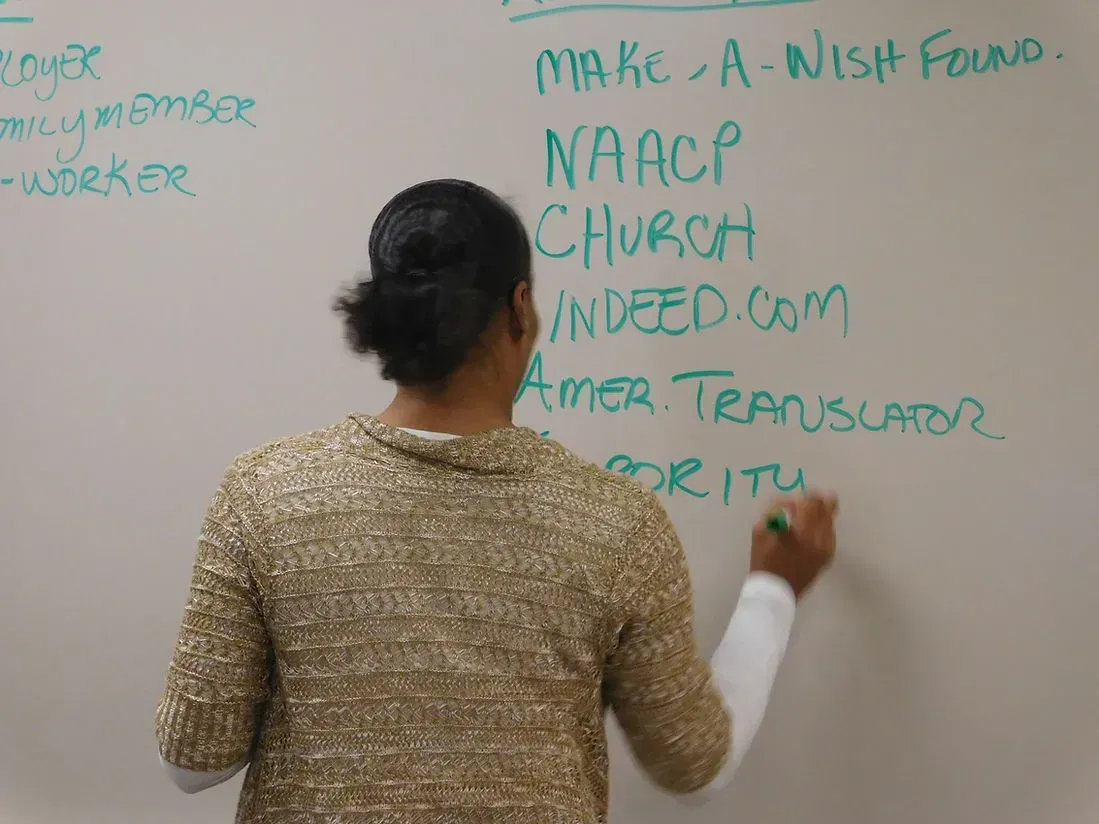 PLOYER
MILY MEMBER
-WORKER
MAKE-A-WISH FOUND.
NAACP
CHURCH
INDEED.COM
AMER. TRANSLATOR
RORITY